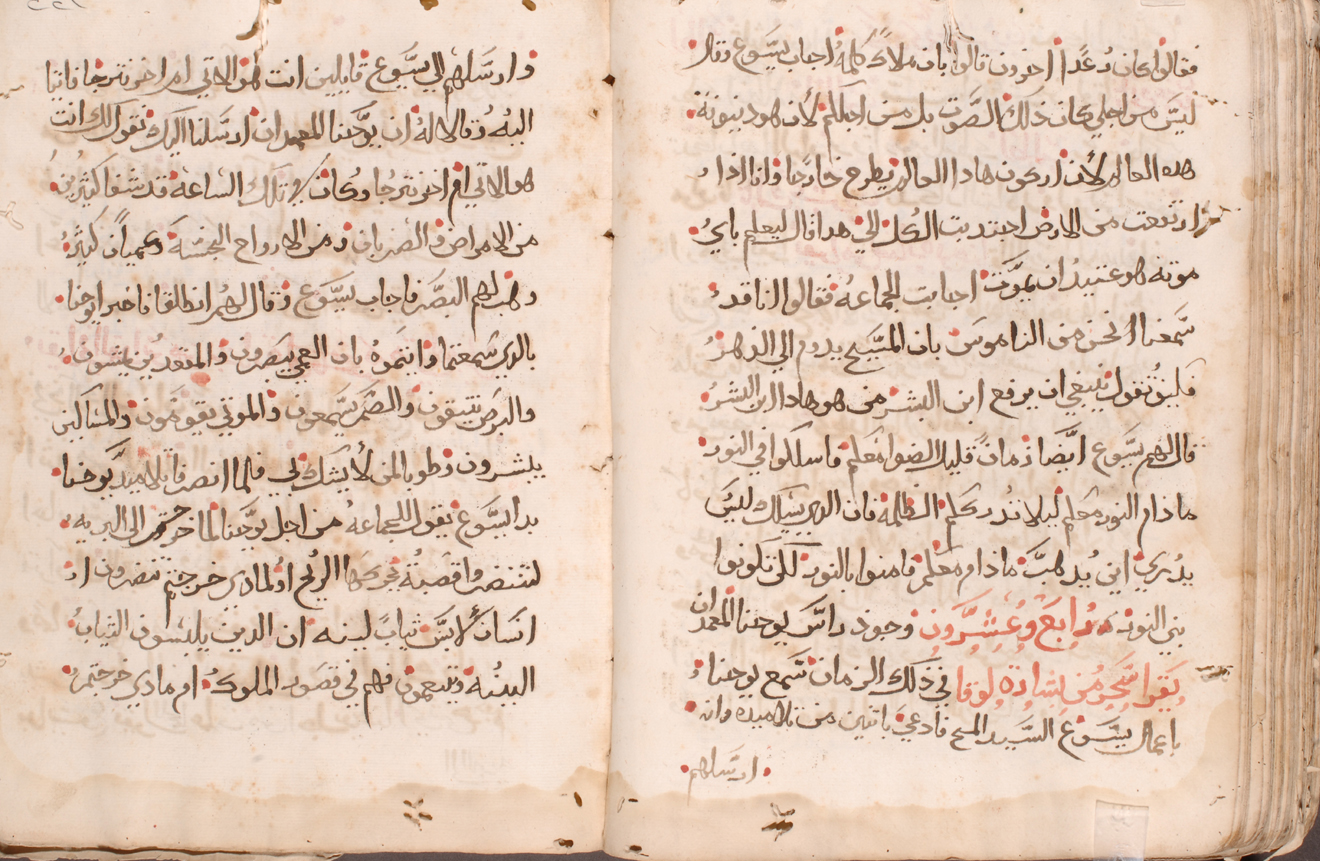 فقالوا كان رعدا اخرون قالوا بان ملاك كلمه اجاب يسوع وقال
ليس من اجلي كان ذلك الصوت بل من اجلكم لان هو دينونة
هده العالم لان اركون هادا العالم يطرح خارجا وانا ادا
ارتفعت من الارض اجتدبت الكل الي هدا قال ليعلم باي
موته هو عتيد ان يموت اجابت الجماعه فقالوا اننا قد
سمعنا نحن من الناموس بان المسيح يدوم الي الدهر
فكيف تقول ينبغي ان يرفع ابن البشر من هو هادا ابن البشر
قال لهم يسوع ايضا زمان قليل الضوا معكم فاسلكوا في النور
ما دام النور معكم ليلا تدرككم الظلمه فان الدي يسلك ليس
يدري اين يدهب ما دام معكم فامنوا بالنور لكي تكونوا
بني النور رابع وعشرون وجود راس يوحنا المعمدان
يقرا سحر من بشارة لوقا في دلك الزمان سمع يوحنا
باعمال يسوع السيد المسيح فادعي باتنين من تلاميده وان
ارسلهم
وارسلهم الي يسوع قايلين انت هو الاتي ام اخر نترجا فاتيا
اليه وقالا له ان يوحنا المعمدان ارسلنا اليك يقول لك انت
هو الاتي ام اخر نترجا وكان في تلك الساعه قد شفا كثيرين
من الامراض والضربات ومن الارواح النجسه وعميان كثيره
وهب لهم البصر فاجاب يسوع وقال لهم انطلقا فاخبرا يوحنا
بالدي سمعتما وانتموه بان العمي يبصرون والمقعدين يمشون
والبرص يتنقون والصم يسمعون والموتي يقومون والمساكين
يبشرون وطوبا لمن لا يشك بي فلما انصرفا تلاميد يوحنا
بدا يسوع يقول للجماعه من اجل يوحنا لما خرجتم الي البريه
لتنضروا قصبة تحركها الريح او لمادي خرجتم تنضرون ا
انسان لابس ثياب لينه ان الدين يلبسون التياب
البدنيه ويتنعمون فهم في قصور الملوك ام مادي خرجتم